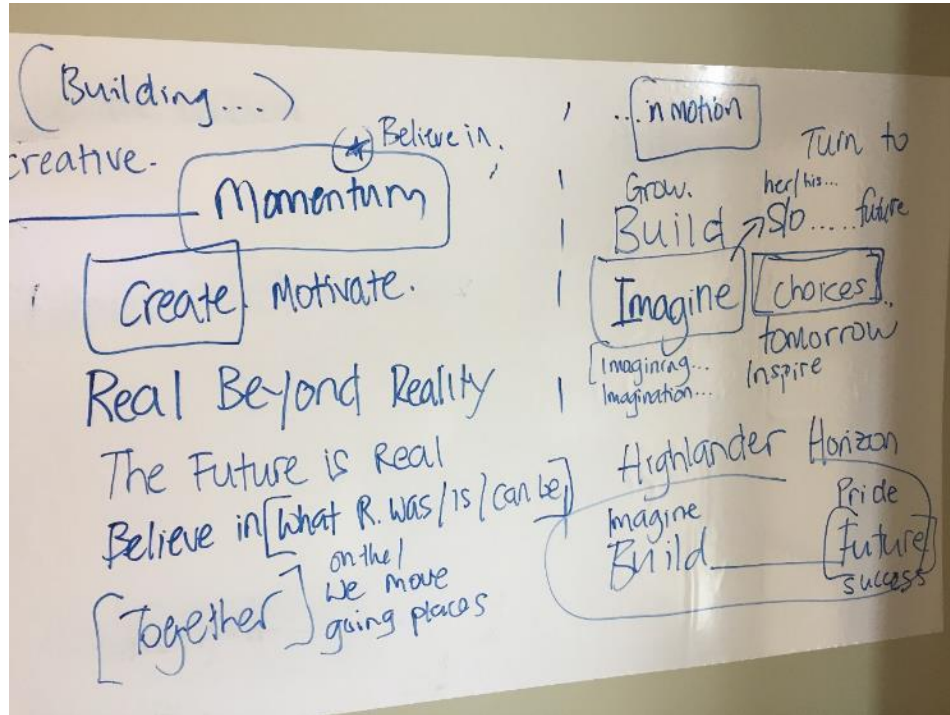 (Building...)
creative.
★ Believe in.
Momentum
Create Motivate.
Real Beyond Reality
The Future is Real
Believe in [What R. was/is/can be]
[Together] on the/
We move
going places
...in motion
Turn to
Grow.
her/his...
Build
S/o.....future
Imagine [choices]...
tomorrow
[Imagining...
Inspire
Imagination...
Highlander Horizon
Pride
Imagine
Build_____[Future]
success